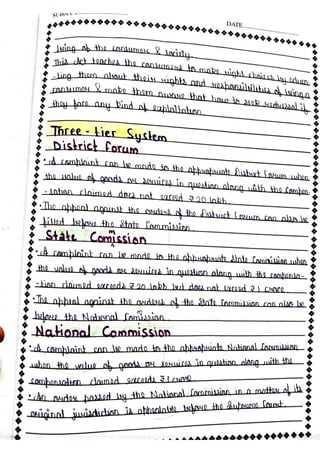 DATE
living of the consumers & society.
This Act teaches the consumers to make right choices by educa
-ting them about their rights and responsibilities of being a
consumer & make them aware that how to seek redressal if
they face any kind of exploitation.
Three-tier System
District Forum
• A complaint can be made to the appropriate District Forum when
the value of goods or services in question along with the compen
-sation claimed does not exceed ₹20 lakh.
• The appeal against the orders of the District Forum can also be
filled before the State Commission
State Comission
• A complaint can be made to the appropriate State Commission when
the value of goods or services in question along with the compensa-
-tion claimed exceeds ₹20 lakh but does not exceed ₹1 crore.
• The appeal against the orders of the State Commission can also be
before the National Comission.
National Commission
• A complaint can be made to the appropriate National Commission
when the value of goods or services in question along with the
compensation claimed exceeds ₹1 crore
• An order passed by the National Commission in a matter of its
original jurisdiction is appealable before the Supreme Court.